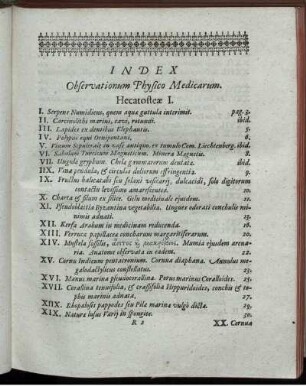 INDEX
Observationum Physico Medicarum.
Hecatosteæ I.
I. Serpens Numidicus, quem aqua guttula interimit. pag. 3.
II. Carcinolithi marini, rari, rotundi. ibid.
III. Lapides ex dentibus Elephantis. 5.
IV. Polypus equi Genipontani. 6.
V. Vinum sepulcrale in vase antiquo. ex tumulo Com. Liechtenberg. ibid.
VI. Kabolam Turcicum Magneticum. Minera Magnetis. 7.
VII. Ungula gryphum. Chela grammarorum dentata. ibid.
IIX. Vina pendula, & circulis doliorum effringentia. 9.
IX. Fructus balaeatici seu folani vesicarij, dulcacidi, solo digitorum
contactu levissimo amarescentes. 10.
X. Charta & filum ex silice. Gelu medicatus ejusdem. 11.
XI. Pseudolactia Byzantina vegetabilia. Ungues odorati conchulis minimis
adnati. 13.
XII. Kerfa Arabum in medicinam reducenda. 16.
XIII. Verruca papillacea concharum margaritiferarum. 20.
XIV. Mustela fossilis, Mamia ejusdem arenaria.
Anatome observata in eadem. 21.
XV. Cornu Indicum pentacronium. Cornua diaphana. Annulus megalodactylicus
constellatus. 23.
XVI. Manus marina pseudocorallina. Porus marinus Coralloides. 25.
XVII. Corallina tenuifolia, & crassifolia Hippuroides, conchis & rophis
marinis adnata, 27.
XIIX. Rhopalosis papposa seu Pila marina vulgò dicta. 29.
XIX. Natura lusus Varij in spongite. 30.
B 2 XX. Cornua